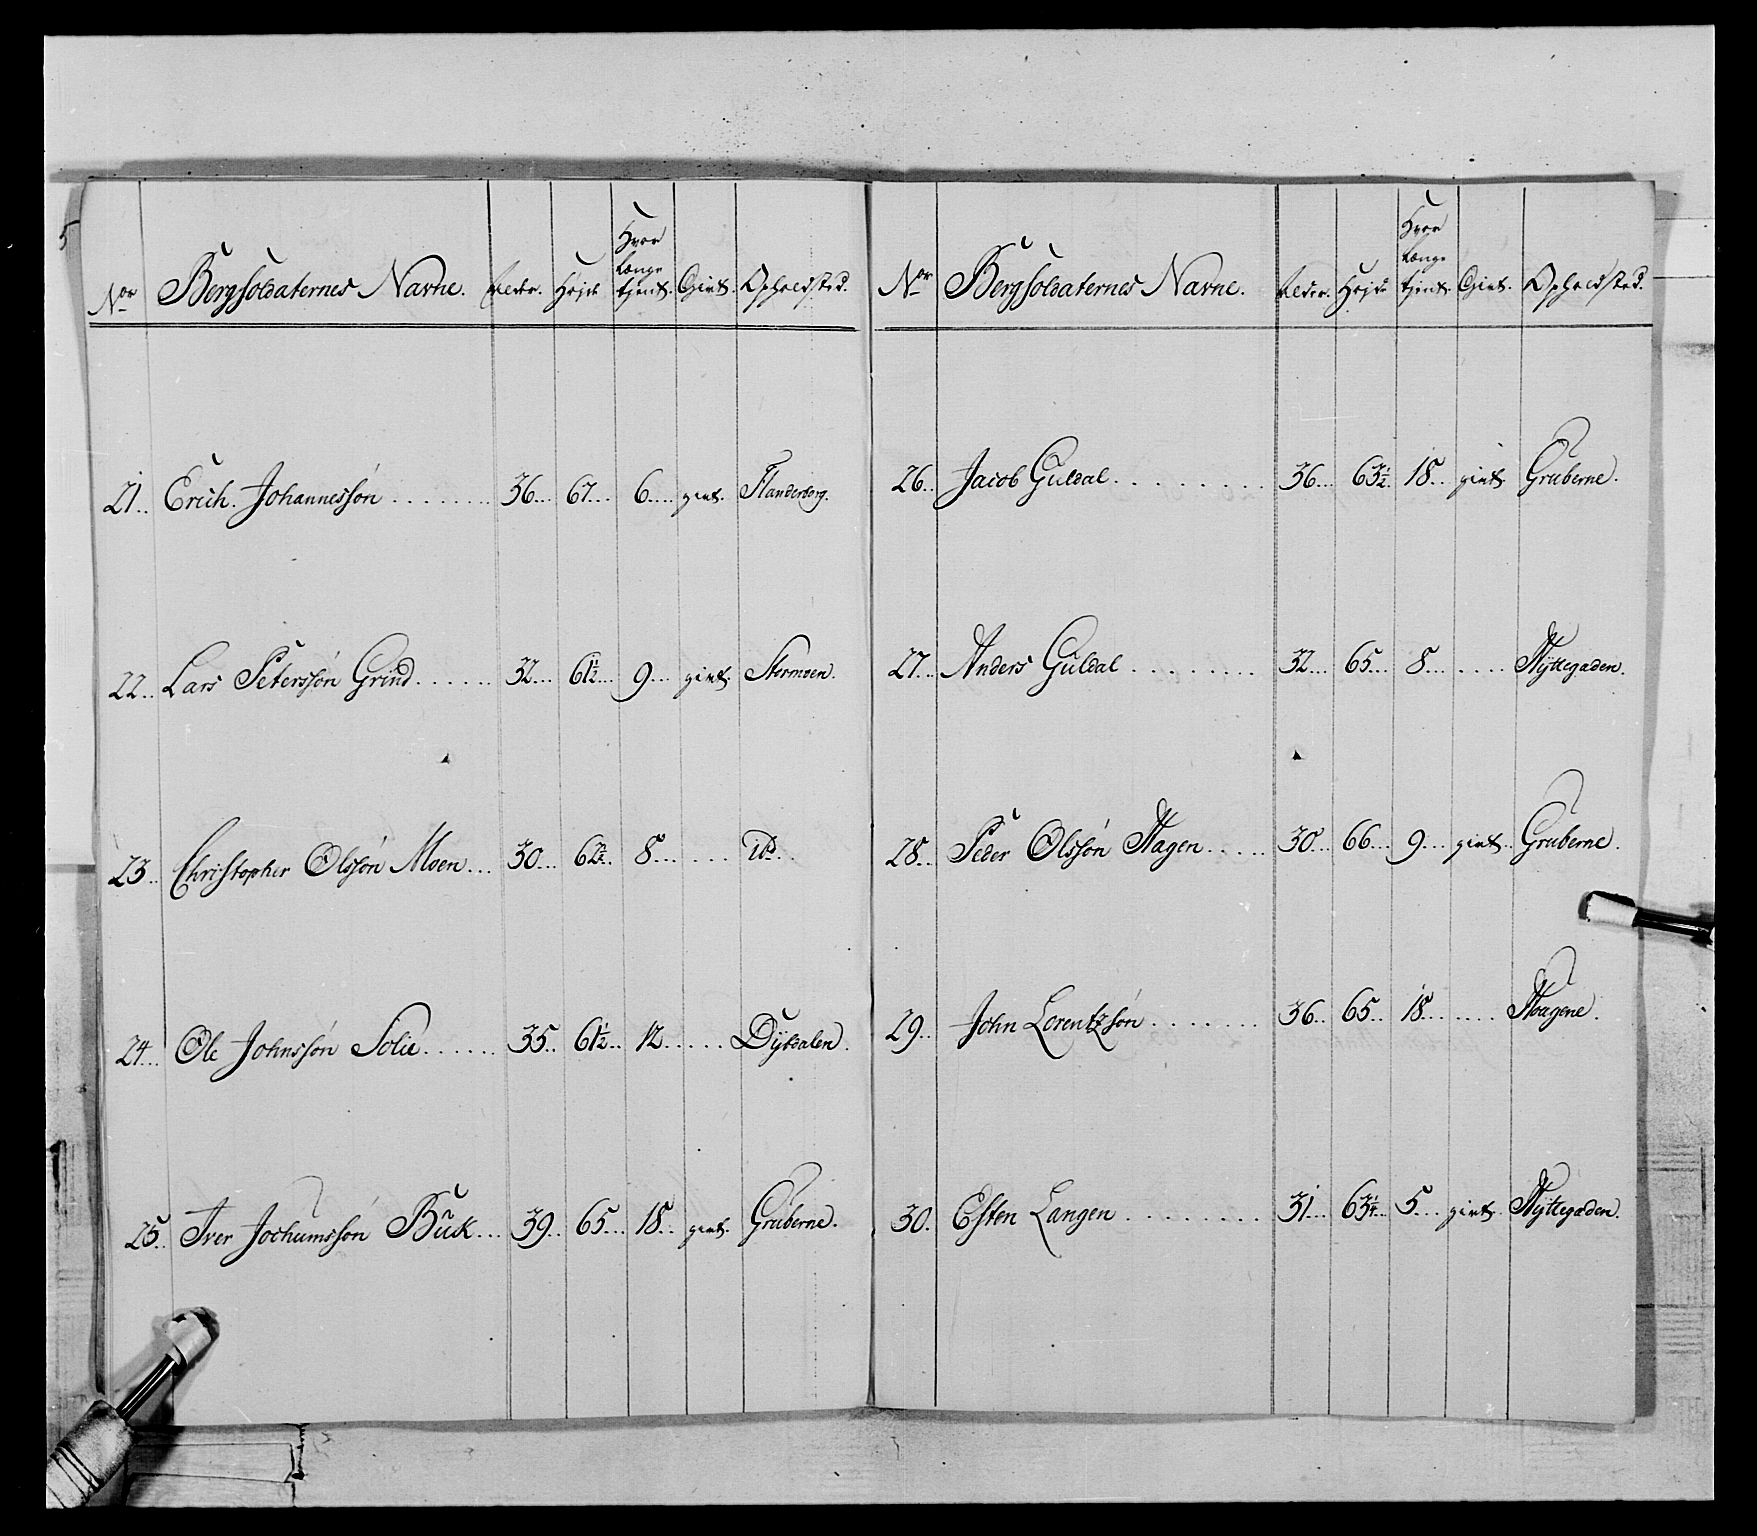 5
Nor Bergsoldaternes Navne. Alder. Højde Hvor længe tjent. Givt. Opholdsted.
21.. Erich Johannessøn ....... 36... 67... 6.... givt. Flanderborg.
22.. Lars Peterssøn Grind ...... 32.... 61½... 9... givt. Stormoen.
23.. Christopher Olssøn Moen... 30... 62¾.. 8... .... ID.
24... Ole Johnssøn Solie...... 35.. 61½.. 12.. .... Dÿbdalen.
25.. Iver Jochumssøn Bük... 39.. 65... 18.. givt. Gruberne.
Nor Bergsoldaternes Navne. Alder. Højde Hvor længe tjent. Givt. Opholdsted.
26.. Jacob Guldal......... 36... 63½. 18.. givt. Gruberne.
27... Anders Guldal ........ 32.... 65... 8.... .... Hÿttegaden.
28.. Peder Olssøn Hagen..... 30... 66... 9... givt.. Gruberne.
29.. John Lorentzsøn....... 36.. 65... 18... ....
30. Esten Langen ......... 31... 63¼... 5... givt. Hÿttegaden.